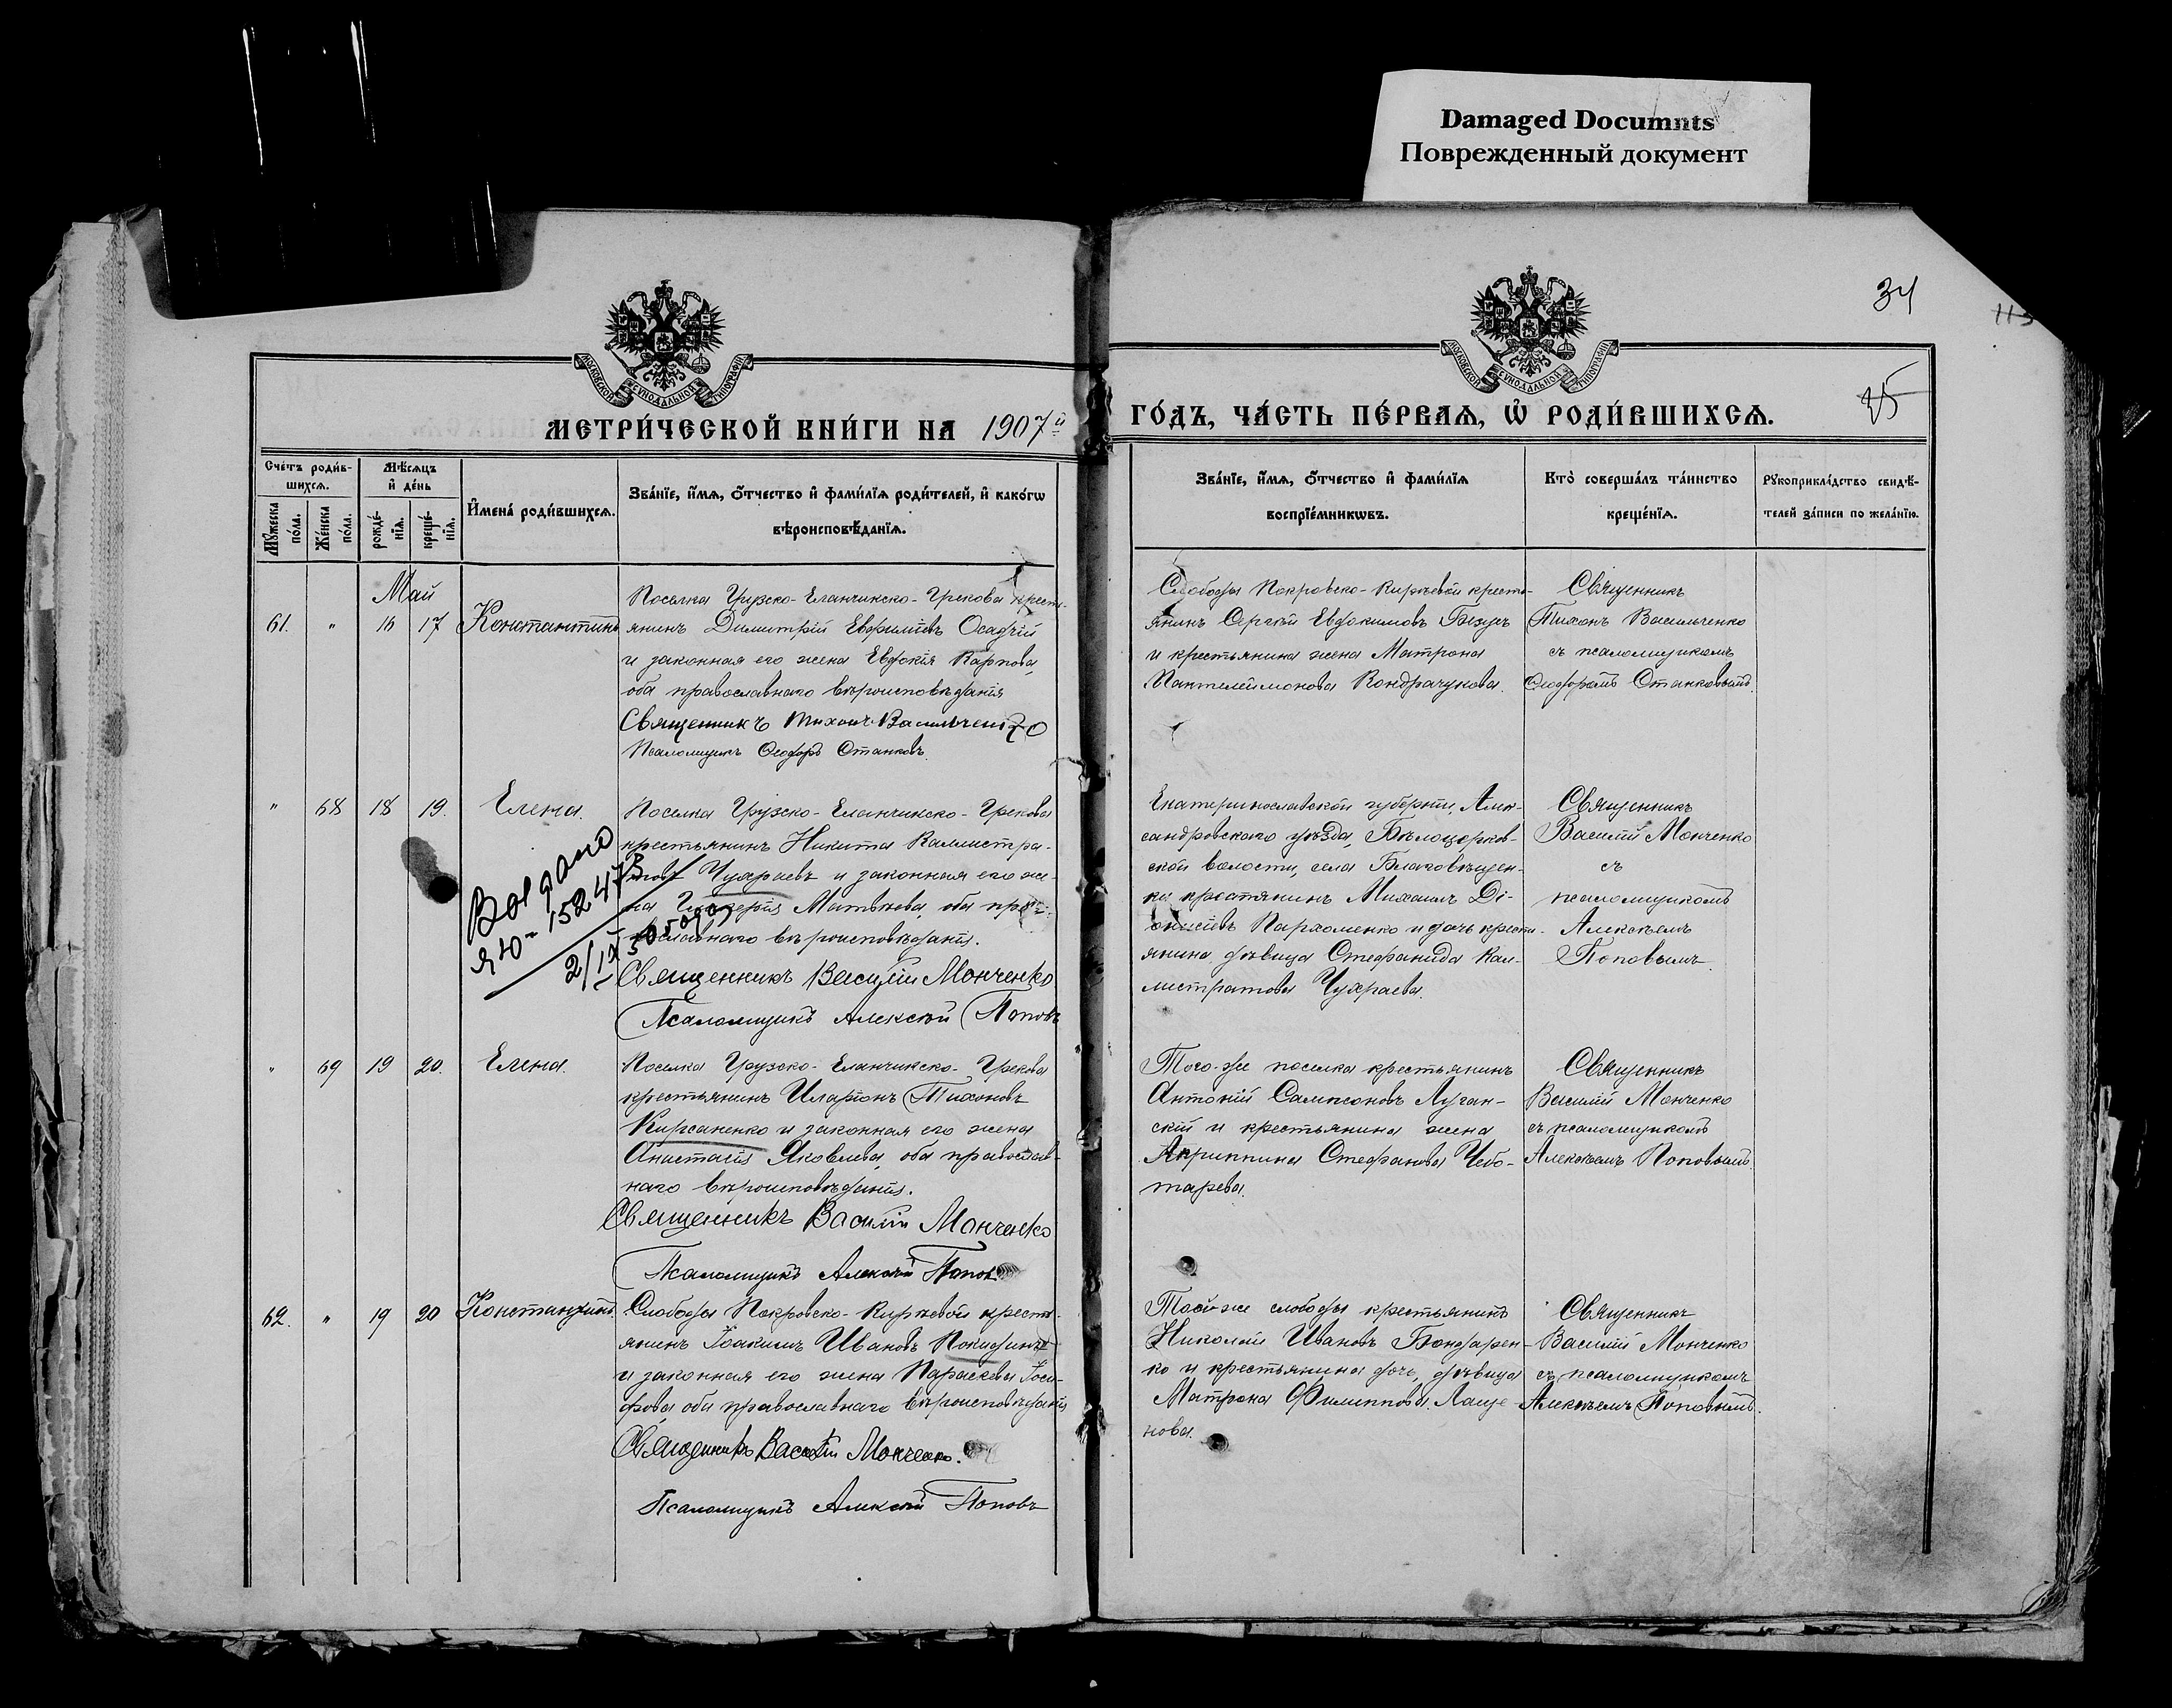 Damaged Documnts
Поврежденный документ
34
115
35
МОСКОВСКОЙ СѴНОДАЛЬНОЙ ТИПОГРАФІИ
МОСКОВСКОЙ СѴНОДАЛЬНОЙ ТИПОГРАФІИ
МЕТРИ́ЧЕСКОЙ КНИ́ГИ НА 1907й
ГО́ДЪ, ЧА́СТЬ ПЕ́РВАѦ, Ѡ҆ РОДИ́ВШИХСѦ.
Сче́тъ роди́в-
шихсѧ.
Мѣ́сѧцъ
и҆ де́нь
Мꙋ́жеска
по́ла.
Же́нска
по́ла.
рожде́-
нїѧ.
креще́-
нїѧ.
И҆мена̀ роди́вшихсѧ.
Зва́нїе, и҆́мѧ, ѻ҆́тчество и҆ фами́лїѧ роди́телей, и҆ како́гѡ
вѣроисповѣ́данїѧ.
Зва́нїе, и҆́мѧ, ѻ҆́тчество и҆ фами́лїѧ
воспрїе́мникѡвъ.
Кто̀ соверша́лъ та́инство
креще́нїѧ.
Рꙋкоприкла́дство свидѣ́-
телей за́писи по жела́нїю.
Май
61. " 16 17 Константинъ
Поселка Грузско-Еланчикско-Грекова кресть-
янинъ Димитрій Евфиміевъ Осадчій
и законная его жена Евдокія Карпова,
оба православнаго вѣроисповѣданія
Священникъ Тихонъ Васильченко
Псаломщикъ Ѳеодоръ Станковъ.
Слободы Покровско-Кирѣевой кресть-
янинъ Сергѣй Евдокимовъ Бѣзугъ
и крестьянина жена Матрона
Пантелеймонова Кондрачукова.
Священникъ
Тихонъ Васильченко
съ псаломщикомъ
Ѳеодоромъ Станковымъ.
" 68 18 19. Елена.
Поселка Грузско-Еланчикско-Грекова
крестьянинъ Никита Каллистра-
товъ Чухраевъ и законная его же-
на Гликерія Матвѣева, оба пра-
вославнаго вѣроисповѣданія.
Священникъ Василій Монченко
Псаломщикъ Алексѣй Поповъ
Выдано
ЯЮ-152473
2/IX 50 года
Екатеринославской губерніи, Алек-
сандровскаго уѣзда, Бѣлоцерков-
ской волости, села Благовѣщен-
ки крестьянинъ Михаилъ Ді-
онисіевъ Пархоменко и дочь кресть-
янина, дѣвица Стефанида Кал-
листратова Чухраева.
Священникъ
Василій Монченко
съ
псаломщикомъ
Алексѣемъ
Поповымъ.
" 69 19 20. Елена.
Поселка Грузско-Еланчикско-Грекова
крестьянинъ Иларіонъ Тихоновъ
Кирсаненко и законная его жена
Анастасія Яковлева, оба православ-
наго вѣроисповѣданія.
Священникъ Василій Монченко
Псаломщикъ Алексѣй Поповъ
Того-же поселка крестьянинъ
Антоній Сампсоновъ Луган-
скій и крестьянина жена
Агриппина Стефанова Чебо-
тарева.
Священникъ
Василій Монченко
съ псаломщикомъ
Алексѣемъ Поповымъ.
62. " 19 20 Константинъ.
Слободы Покровско-Кирѣевой кресть-
янинъ Іоакимъ Ивановъ
и законная его жена Параскева Іоси-
фова, оба православнаго вѣроисповѣданія
Священникъ Василій Монченко.
Псаломщикъ Алексѣй Поповъ
Той-же слободы крестьянинъ
Николай Ивановъ Бондарен-
ко и крестьянина дочь, дѣвица
Матрона Филиппова Лаще-
нова.
Священникъ
Василій Монченко
съ псаломщикомъ
Алексѣемъ Поповымъ.